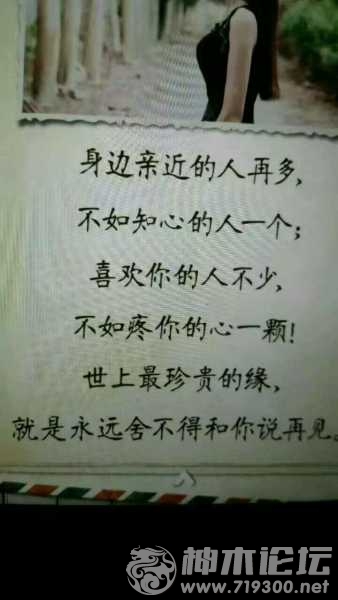 身边亲近的人再多,
不如知心的人一个;
喜欢你的人不少,
不如疼你的心一颗!
世上最珍贵的缘,
就是永远舍不得和你说再见。
神木论坛
www.719300.net